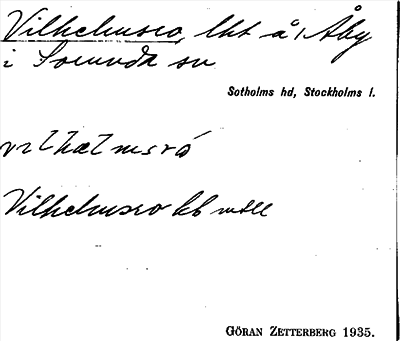 Vilhelmsro, lht å/ Åby
i Sorunda sn
Sotholms hd, Stockholms l.
vilhælmsró
Vilhelmsro kb
GÖRAN ZETTERBERG 1935.